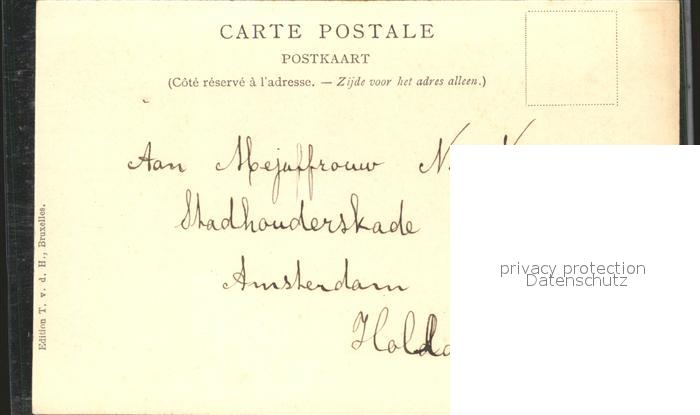 CARTE POSTALE
POSTKAART
(Côté réservé à l'adresse. — Zijde voor het adres alleen.)
Aan Mejuffrouw N.
Stadhouderskade
Amsterdam
Holla
Edition T. v. d. H., Bruxelles.
privacy protection
Datenschutz